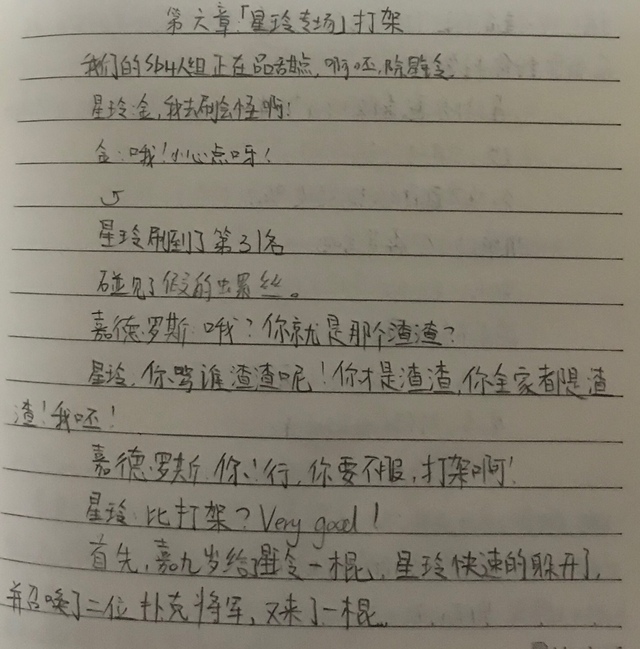 第六章「星玲专场」打架
我们的sb4人组正在品甜点，啊呸，除星玲。
星玲：金，我去刷会怪啊！
金：哦！小心点呀！
星玲刷到了第31名
碰见了假的螺丝。
嘉德罗斯：哦？你就是那个渣渣？
星玲：你骂谁渣渣呢！你才是渣渣，你全家都是渣
渣！我呸！
嘉德罗斯：你！行，你要不服，打架啊！
星玲：比打架？Very good！
首先，嘉九岁给星玲一棍，星玲快速的躲开了，
并召唤了二位扑克将军，又来了一棍